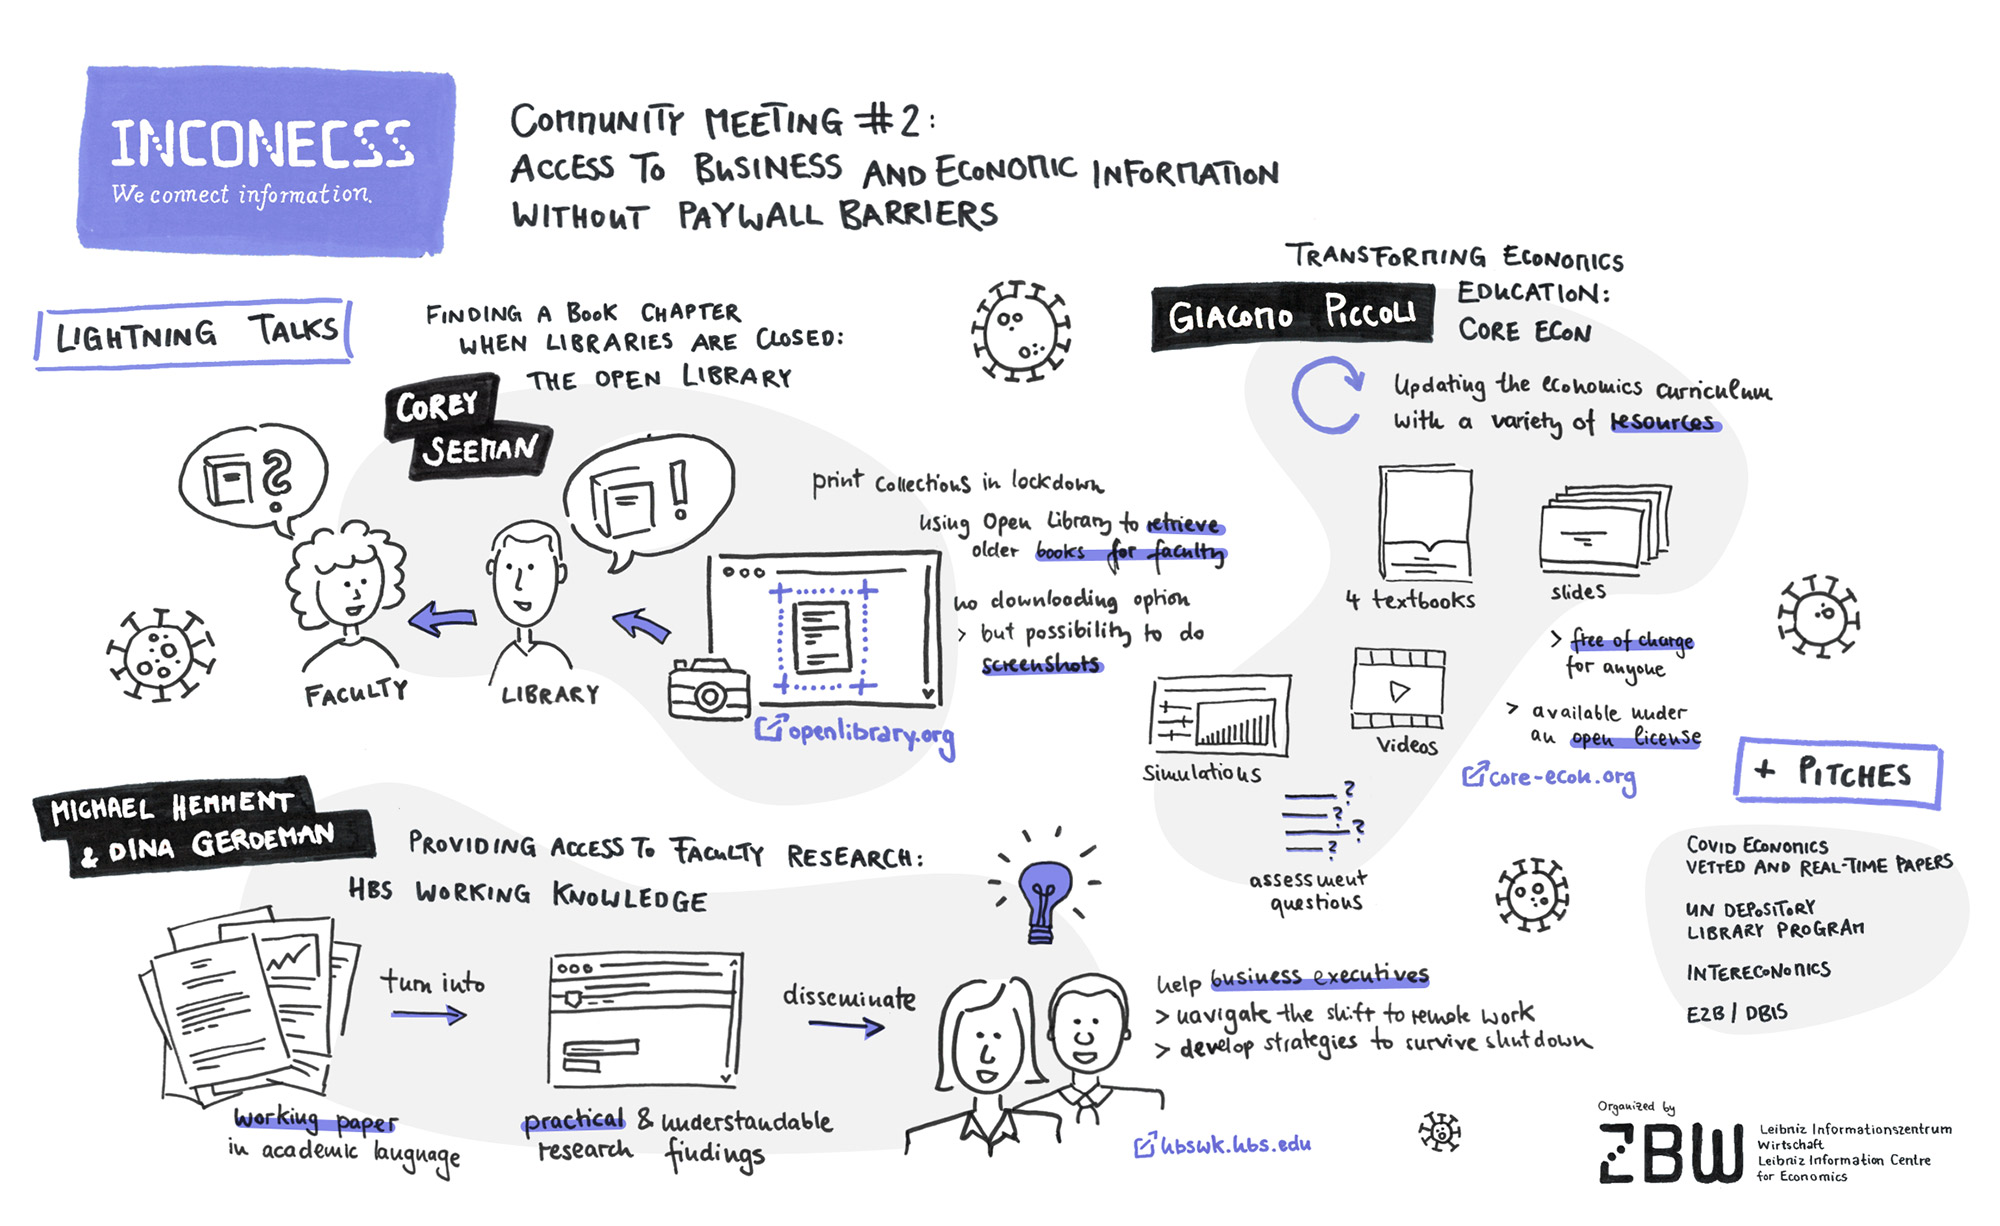 INCONECSS
We connect information.
COMMUNITY MEETING #2:
ACCESS TO BUSINESS AND ECONOMIC INFORMATION
WITHOUT PAYWALL BARRIERS
LIGHTNING TALKS
FINDING A BOOK CHAPTER
WHEN LIBRARIES ARE CLOSED:
THE OPEN LIBRARY
COREY
SEEMAN
?
!
FACULTY
LIBRARY
print collections in lockdown
using Open Library to retrieve
older books for faculty
no downloading option
> but possibility to do
screenshots
openlibrary.org
TRANSFORMING ECONOMICS
EDUCATION:
CORE ECON
GIACOMO PICCOLI
updating the economics curriculum
with a variety of resources
4 textbooks
slides
> free of charge
for anyone
> available under
an open license
core-econ.org
simulations
videos
?
?
?
?
assessment
questions
MICHAEL HEMMENT
& DINA GERDEMAN
PROVIDING ACCESS TO FACULTY RESEARCH:
HBS WORKING KNOWLEDGE
turn into
disseminate
working paper
in academic language
practical & understandable
research findings
help business executives
> navigate the shift to remote work
> develop strategies to survive shutdown
hbswk.hbs.edu
+ PITCHES
COVID ECONOMICS
VETTED AND REAL-TIME PAPERS
UN DEPOSITORY
LIBRARY PROGRAM
INTERECONOMICS
EZB / DBIS
Organized by
ZBW
Leibniz Informationszentrum
Wirtschaft
Leibniz Information Centre
for Economics